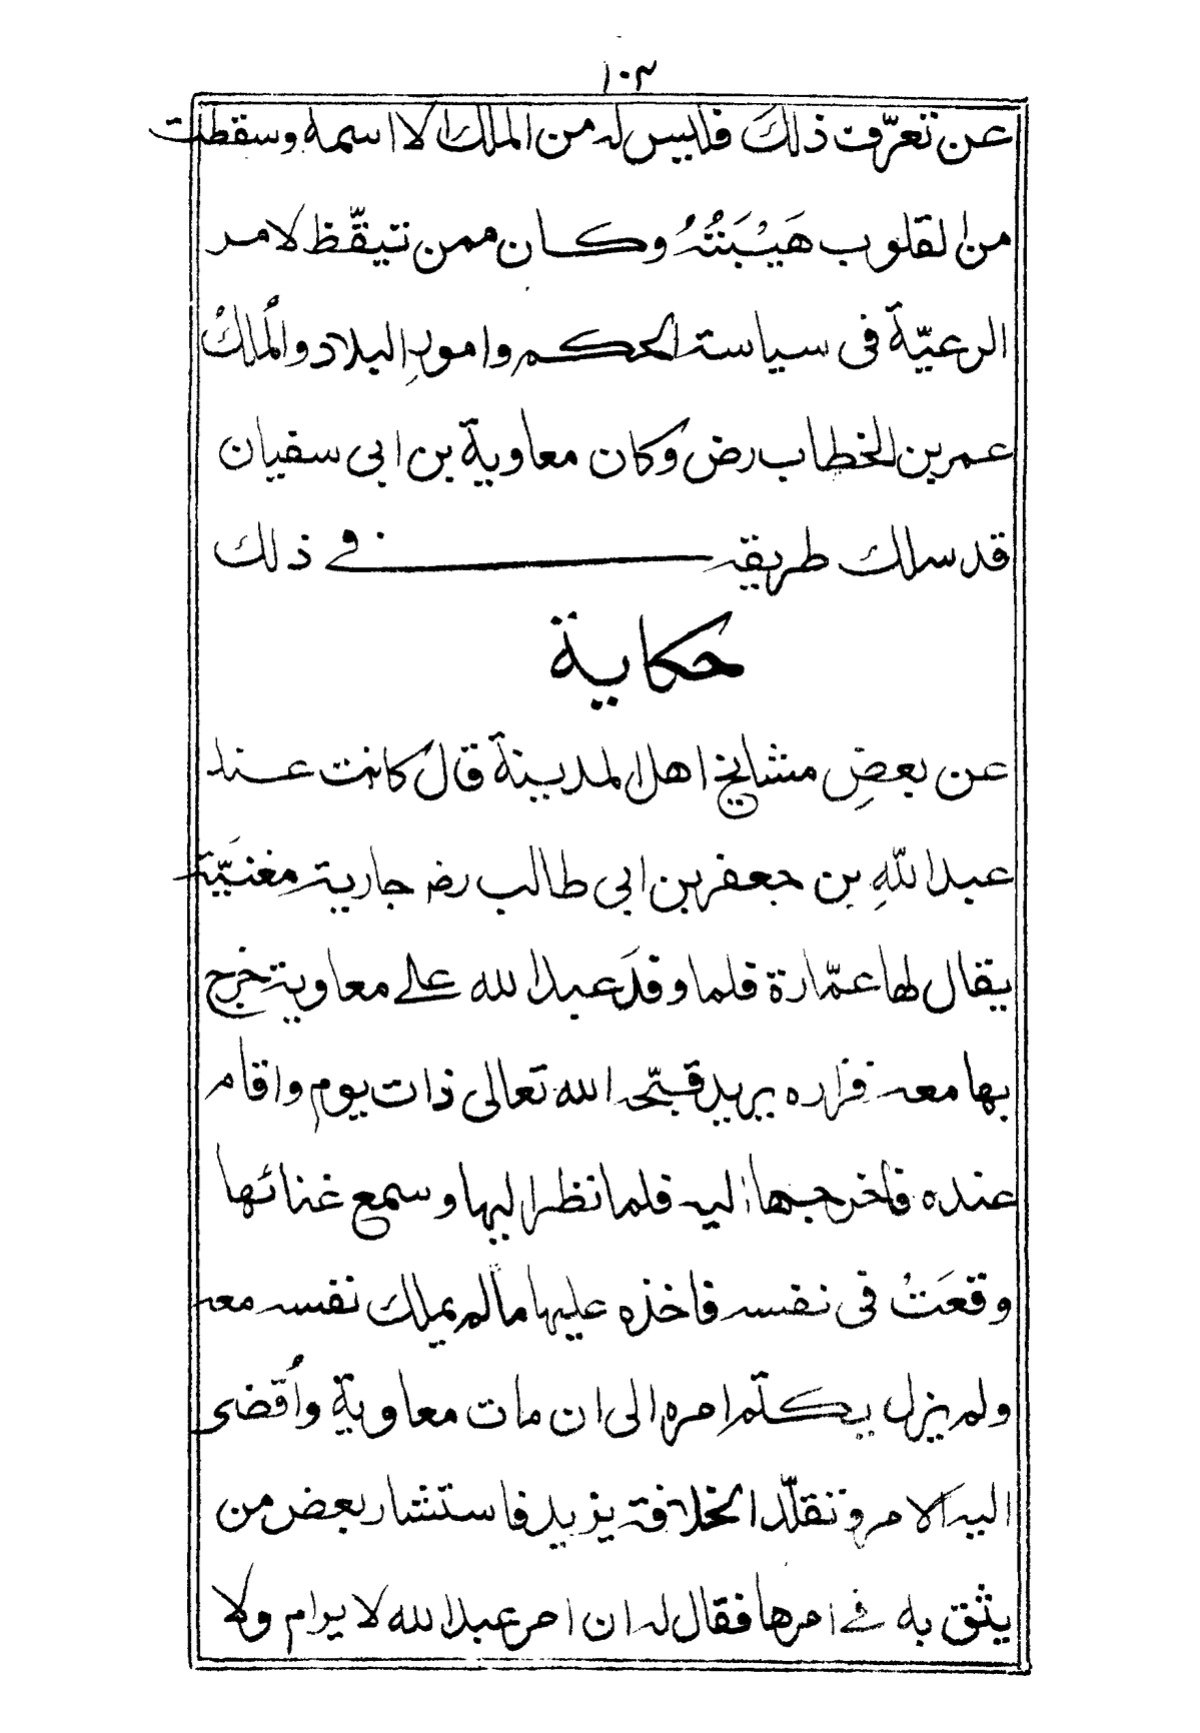 ١٠٣
عن تعرّف ذلك فليس له من الملك الا اسمه وسقطت
من القلوب هَيْبَتُهُ وكان ممن تتيقّظ لامر
الرعيّة فى سياسة الحكم وامور البلاد والمُلك
عمر بن الخطاب رض وكان معاوية بن ابى سفيان
قد سلك طريقه فے ذلك
حكاية
عن بعضِ مشايخ اهل المدينة قال كانت عند
عبد اللّهِ بن جعفر بن ابى طالب رضـ جارية مغنيّة
يقال لها عمّارة فلما وفدَ عبد الله علے معاوية خرج
بها معه فزاره يزيد قبّحه الله تعالى ذات يوم واقام
عنده فاخرجها اليه فلما نظر اليها وسمع غنائها
وقعَتْ فى نفسه فاخذه عليها مالم يملك نفسه معه
ولم يزل يكتم امره الى ان مات معاوية واُفضى
اليه الامر وتقلّد الخلافة يزيد فاستشار بعض من
يثق به فے امرها فقال له ان امر عبد الله لا يرام ولا